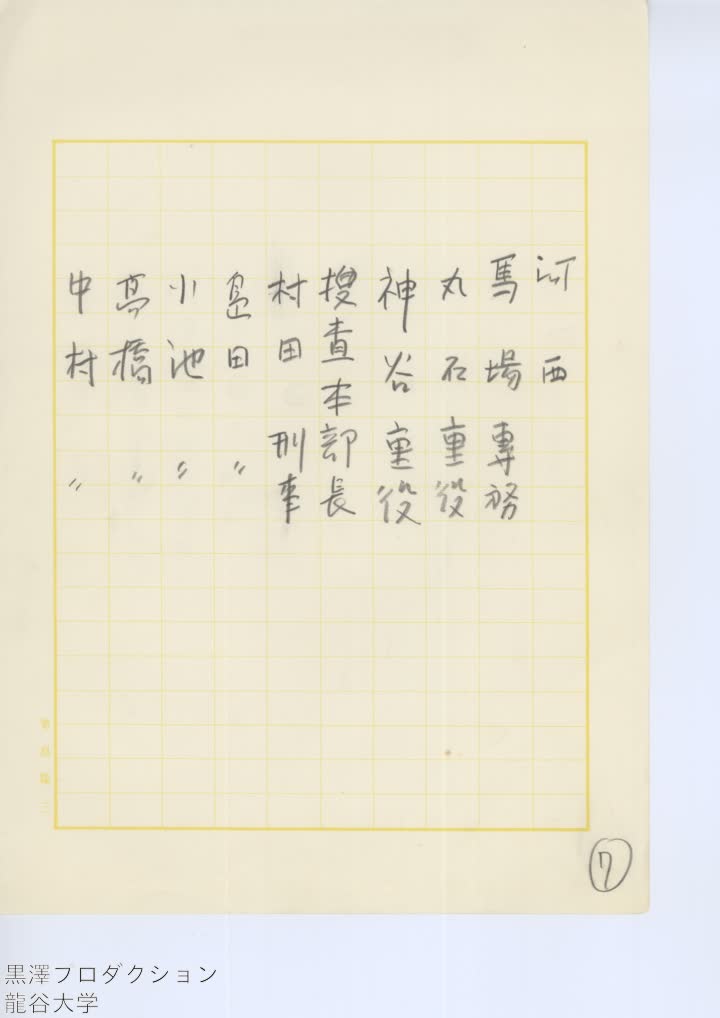 河西
馬場専務
丸石重役
神谷重役
捜査本部長
村田刑事
島田〃
小池〃
高橋〃
中村〃
7
黒澤プロダクション
龍谷大学